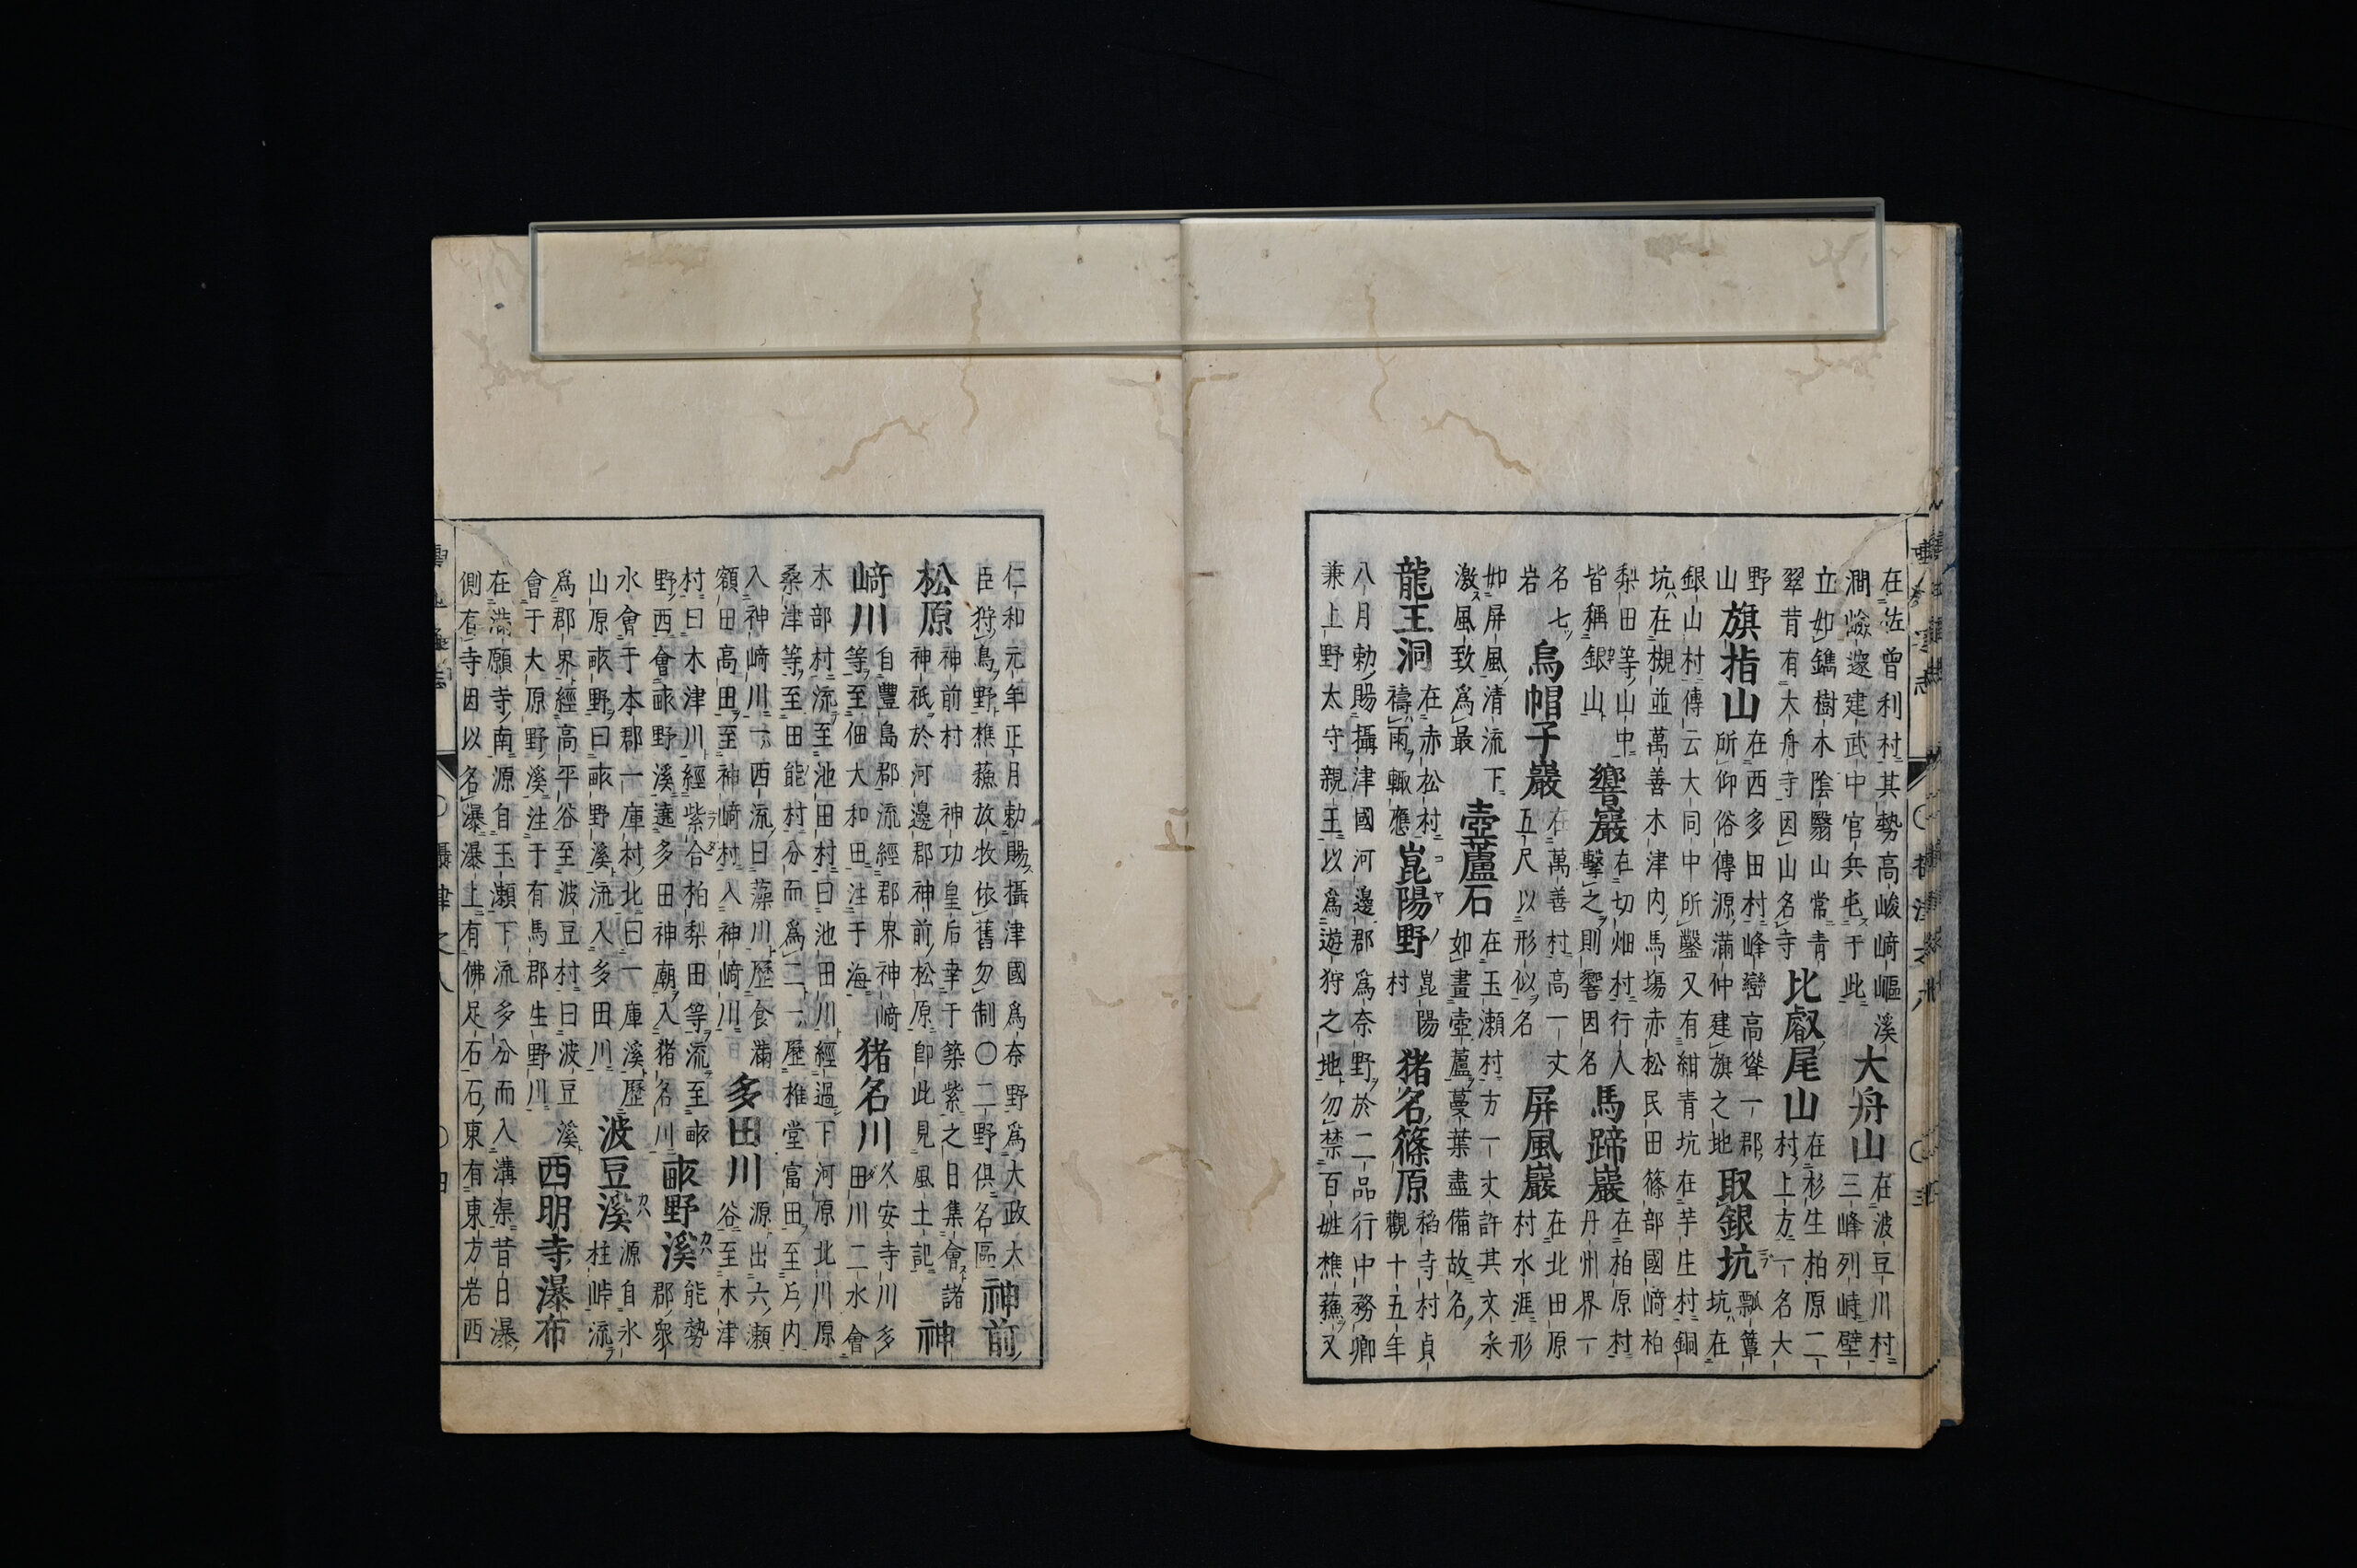 在佐曾利村其勢高峻﨑嶇溪
澗嶮邃建武中官兵屯于此
大舟山
在波豆川村
三峰列峙壁
立如鐫樹木陰翳山常青
翠昔有大舟寺因山名寺
比叡尾山
在杉生柏原二
村上方一名大
野
山
旗指山
在西多田村峰巒高聳一郡
所仰俗傳源滿仲建旗之地
取銀坑
瓢簞
坑在
銀山村傳云大同中所鑿又有紺青坑在芋庄村銅
坑在槻並萬善木津内馬塲赤松民田篠部國﨑柏
梨田等山中
皆稱銀山
響巖
在切畑村行人
擊之則響因名
馬蹄巖
在柏原村
丹州界一
名七ッ
岩
烏帽子巖
在萬善村高一丈
五尺以形似名
屏風巖
在北田原
村水涯形
如屏風清流下
激風致爲最
壺蘆石
在玉瀬村方一丈許其文采
如畫壺蘆蔓葉盡備故名
龍王洞
在赤松村
禱雨輙應
崑陽野
崑陽
村
猪名篠原
稻寺村貞
觀十五年
八月勅賜攝津國河邊郡爲奈野於二品行中務卿
兼上野太守親王以爲遊狩之地勿禁百姓樵蘓又
仁和元年正月勅賜攝津國爲奈野爲大政大
臣狩鳥野樵蘓放牧依舊勿制〇二野俱名區
神前
松原
神前村 神功皇后幸于築紫之日集會諸
神祇於河邊郡神前松原卽此見風土記
神
﨑川
自豊島郡流經郡界神﨑
等至佃大和田注于海
猪名川
久安寺川多
田川二水會
木部村流至池田村曰池田川經過下河原北川原
桑津等至田能村分而爲二一歷椎堂富田至戸内
入神﨑川一西流曰藻川歷食滿
額田高田至神﨑村入神﨑川
多田川
源出六瀬
谷至木津
村曰木津川經紫合柏梨田等流至畝
野西會畝野溪遶多田神廟入猪名川
畝野溪
能勢
郡衆
水會于本郡一庫村北曰一庫溪歷
山原畝野曰畝野溪流入多田川
波豆溪
源自氷
柱峠流
爲郡界經高平谷至波豆村曰波豆溪
會于大原野溪注于有馬郡生野川
西明寺瀑布
在滿願寺南源自玉瀬下流多分而入溝渠昔日瀑
側有寺因以名瀑瀑上有佛足石石東有東方岩西